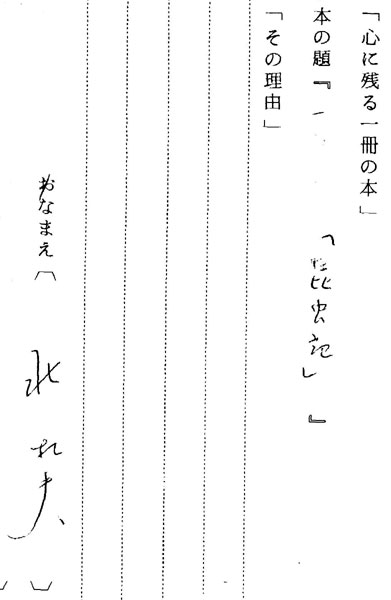 「心に残る一冊の本」
本の題『「昆虫記」』
「その理由」
おなまえ（北 杜夫）